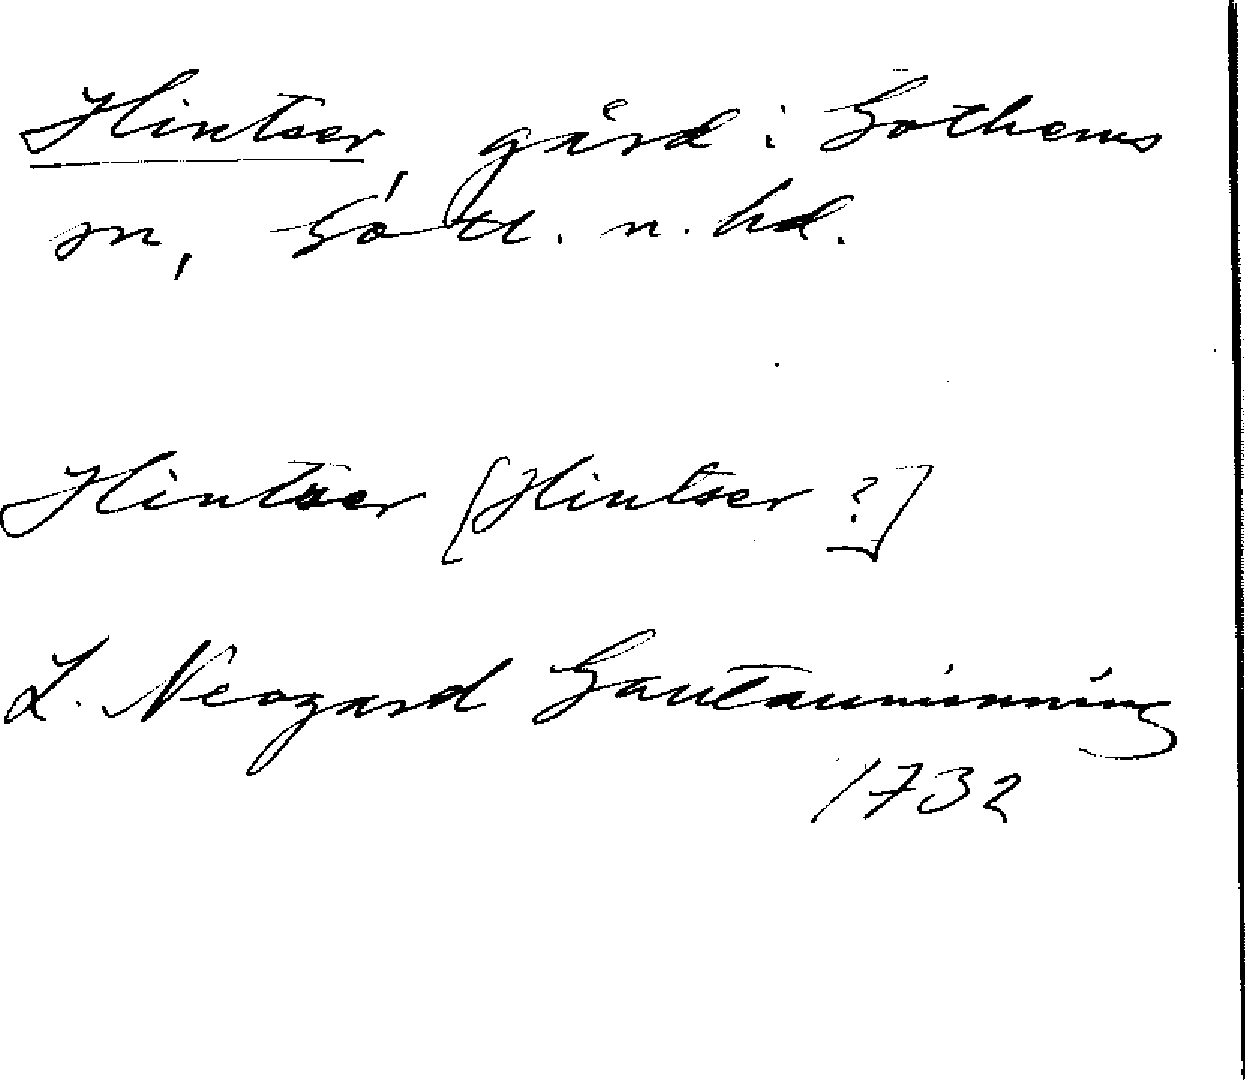 Hintser, gård i Gothems
sn, Gotl. n. hd.
Hintser [Hintser ?]
L. Neogard Gautauminning
1732